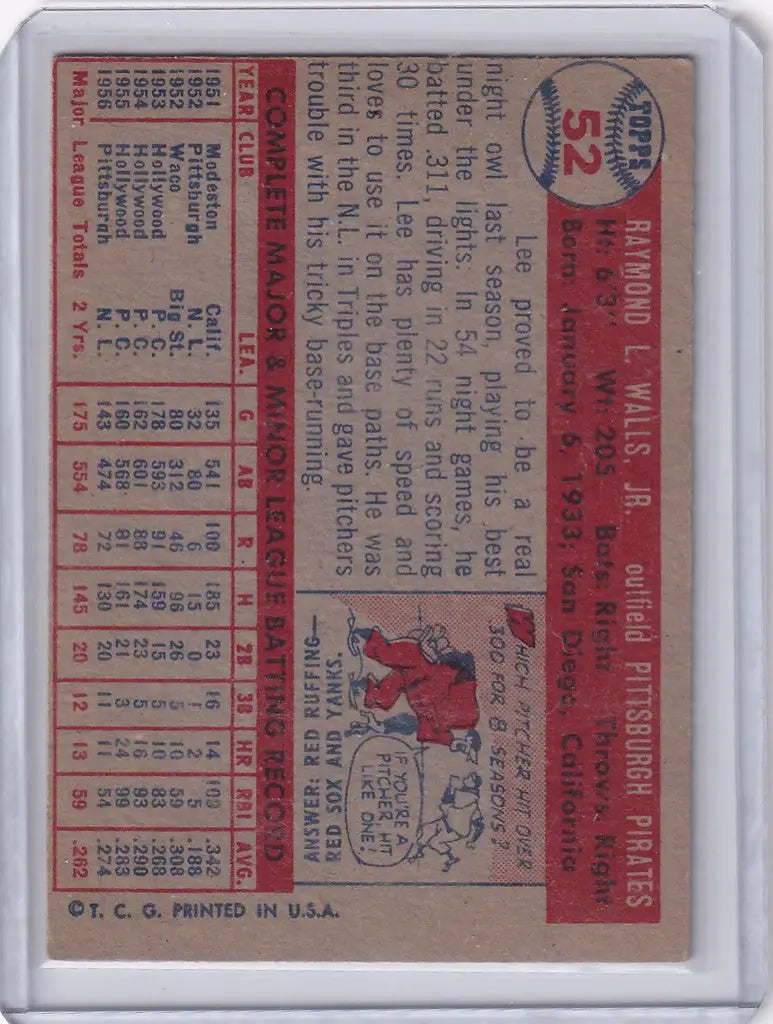 TOPPS
52
RAYMOND L. WALLS, JR. outfield PITTSBURGH PIRATES
Ht: 6'3" Wt: 205 Bats: Right Throws: Right
Born: January 6, 1933; San Diego, California
Lee proved to be a real
night owl last season, playing his best
under the lights. In 54 night games, he
batted .311, driving in 22 runs and scoring
30 times. Lee has plenty of speed and
loves to use it on the base paths. He was
third in the N.L. in Triples and gave pitchers
trouble with his tricky base-running.
WHICH PITCHER HIT OVER
300 FOR 8 SEASONS?
IF YOU'RE A
PITCHER HIT
LIKE ONE!
ANSWER: RED RUFFING—
RED SOX AND YANKS.
COMPLETE MAJOR & MINOR LEAGUE BATTING RECORD
YEAR CLUB LEA. G AB R H 2B 3B HR RBI AVG.
1951 Modeston Calif. 135 541 100 185 23 16 14 .342
1952 Pittsburgh N.L. 32 80 6 15 0 1 2 5 .188
1952 Waco Big St. 80 312 46 96 26 5 10 59 .308
1953 Hollywood P.C. 178 593 91 159 15 5 10 83 .268
1954 Hollywood P.C. 162 601 88 174 23 5 16 93 .290
1955 Hollywood P.C. 160 568 81 161 21 3 24 99 .283
1956 Pittsburgh N.L. 143 474 72 130 20 11 11 54 .274
Major League Totals 2 Yrs. 175 554 78 145 20 12 13 59 .262
© T. C. G. PRINTED IN U.S.A.